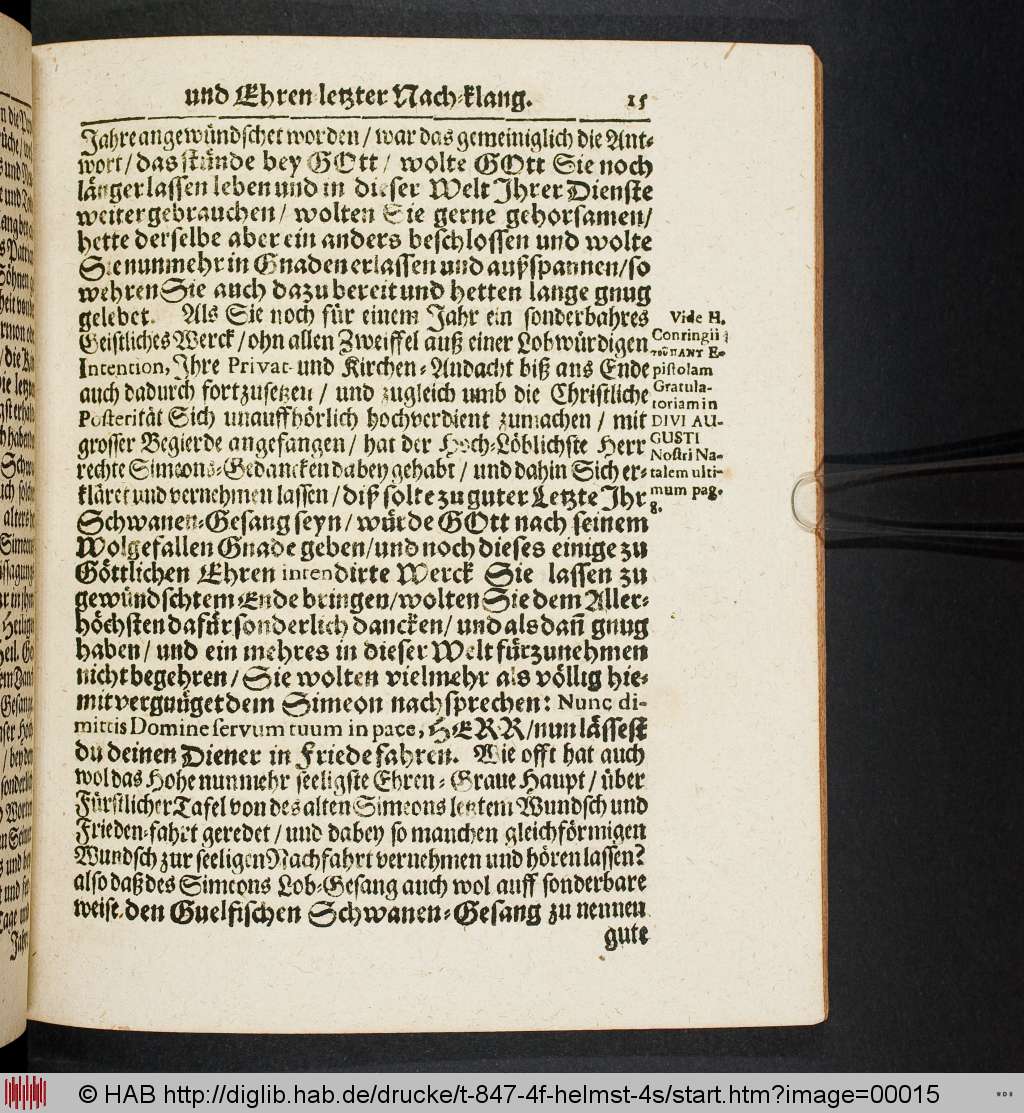 und Ehren letzter Nach-klang. 15
Jahre angewündschet worden / war das gemeiniglich die Ant-
wort / das stünde bey GOtt / wolte GOtt Sie noch
länger lassen leben und in dieser Welt Ihrer Dienste
weiter gebrauchen / wolten Sie gerne gehorsamen /
hette derselbe aber ein anders beschlossen und wolte
Sie nunmehr in Gnaden erlassen und außspannen / so
wehren Sie auch dazu bereit und hetten lange gnug
gelebet. Als Sie noch für einem Jahr ein sonderbahres
Geistliches Werck / ohn allen Zweiffel auß einer Lobwürdigen
Intention, Ihre Privat- und Kirchen-Andacht biß ans Ende
auch dadurch fortzusetzen / und zugleich umb die Christliche
Posterität Sich unauffhörlich hochverdient zumachen / mit
grosser Begierde angefangen / hat der Hoch-Löblichste Herr
rechte Simeons-Gedancken dabey gehabt / und dahin Sich er-
kläret und vernehmen lassen / diß solte zu guter Letzte Ihr
Schwanen-Gesang seyn / würde GOtt nach seinem
Wolgefallen Gnade geben / und noch dieses einige zu
Göttlichen Ehren intendirte Werck Sie lassen zu
gewündschtem Ende bringen / wolten Sie dem Aller-
höchsten dafür sonderlich dancken / und als dañ gnug
haben / und ein mehres in dieser Welt fürzunehmen
nicht begehren / Sie wolten vielmehr als völlig hie-
mit vergnüget dem Simeon nachsprechen: Nunc di-
mittis Domine servum tuum in pace, HERR / nun lässest
du deinen Diener in Friede fahren. Wie offt hat auch
wol das Hohe nunmehr seeligste Ehren-Graue Haupt / über
Fürstlicher Tafel von des alten Simeons letztem Wundsch und
Frieden-fahrt geredet / und dabey so manchen gleichförmigen
Wundsch zur seeligen Nachfahrt vernehmen und hören lassen?
also daß des Simeons Lob-Gesang auch wol auff sonderbare
weise den Guelfischen Schwanen-Gesang zu nennen
gute
Vide H.
Conringii
E-
pistolam
Gratula-
toriam in
DIVI AU-
GUSTI
Nostri Na-
talem ulti-
mum pag.
8.
© HAB http://diglib.hab.de/drucke/t-847-4f-helmst-4s/start.htm?image=00015